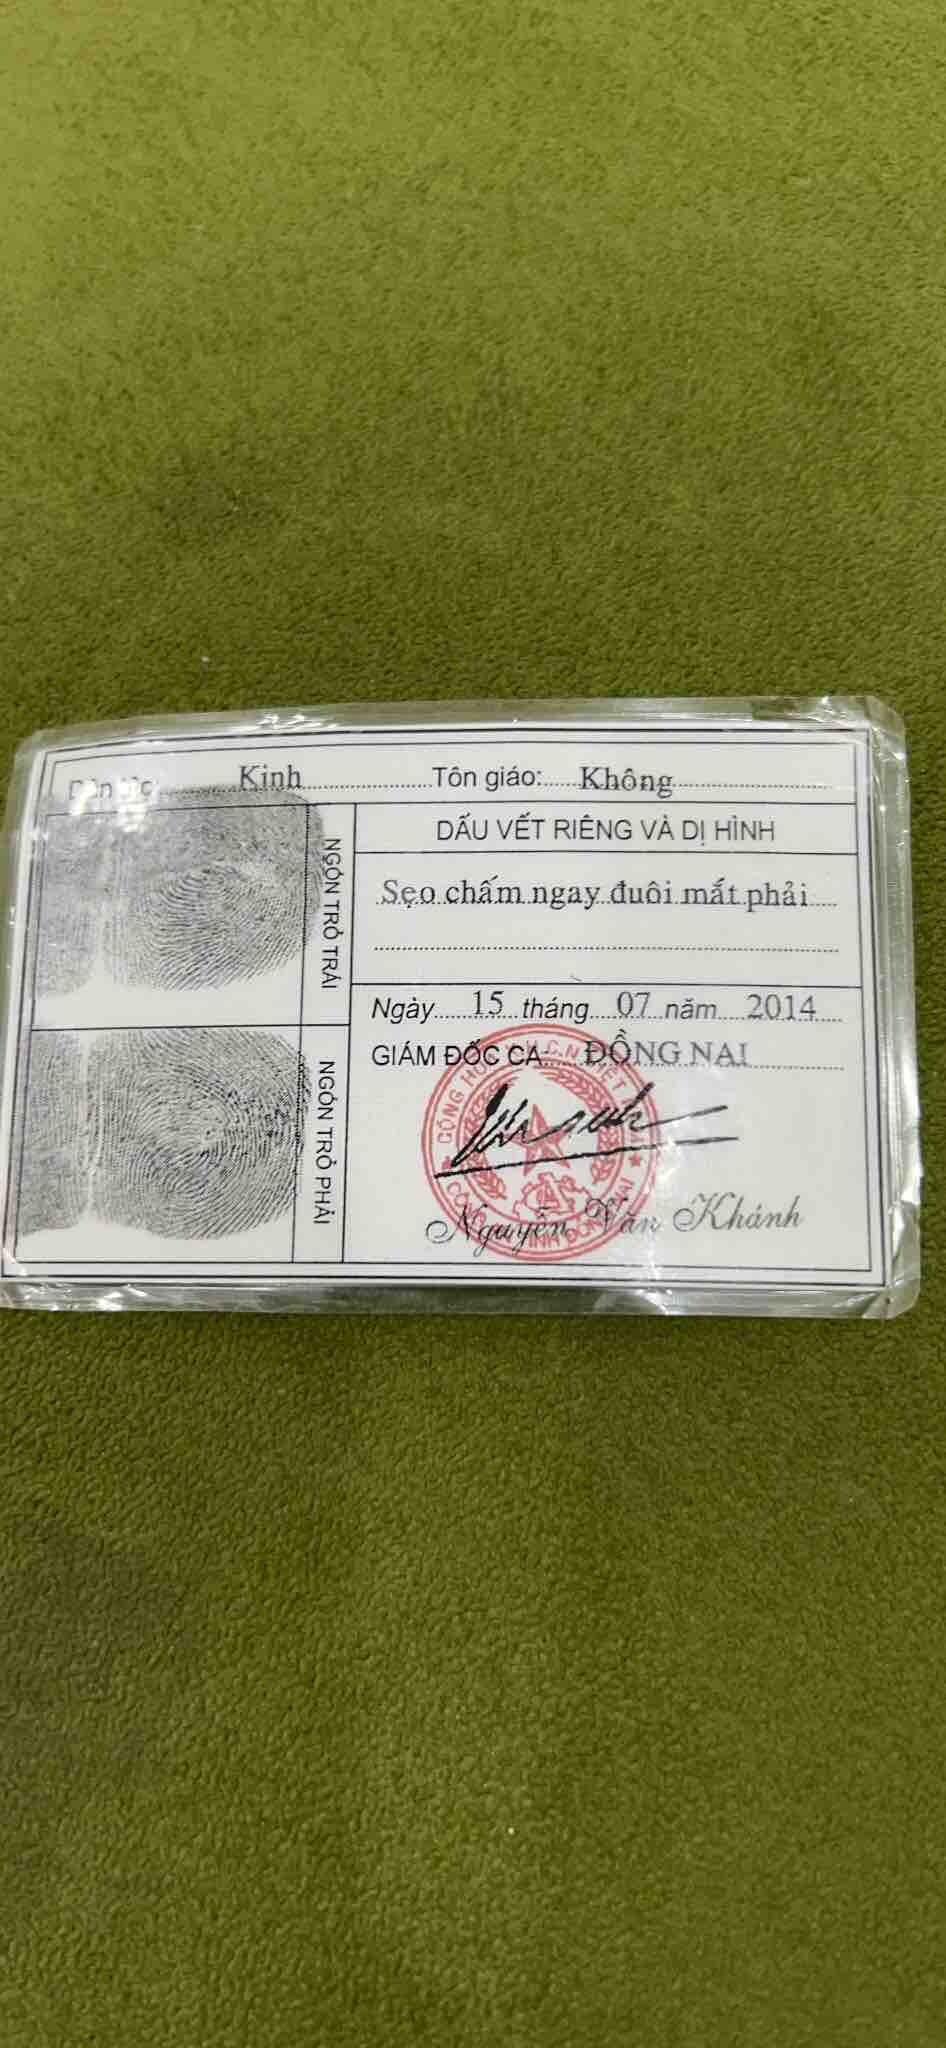 Dân tộc: Kinh Tôn giáo: Không
NGÓN TRỎ TRÁI
NGÓN TRỎ PHẢI
DẤU VẾT RIÊNG VÀ DỊ HÌNH
Sẹo chấm ngay đuôi mắt phải
Ngày 15 tháng 07 năm 2014
GIÁM ĐỐC CA ĐỒNG NAI
Nguyễn Văn Khánh